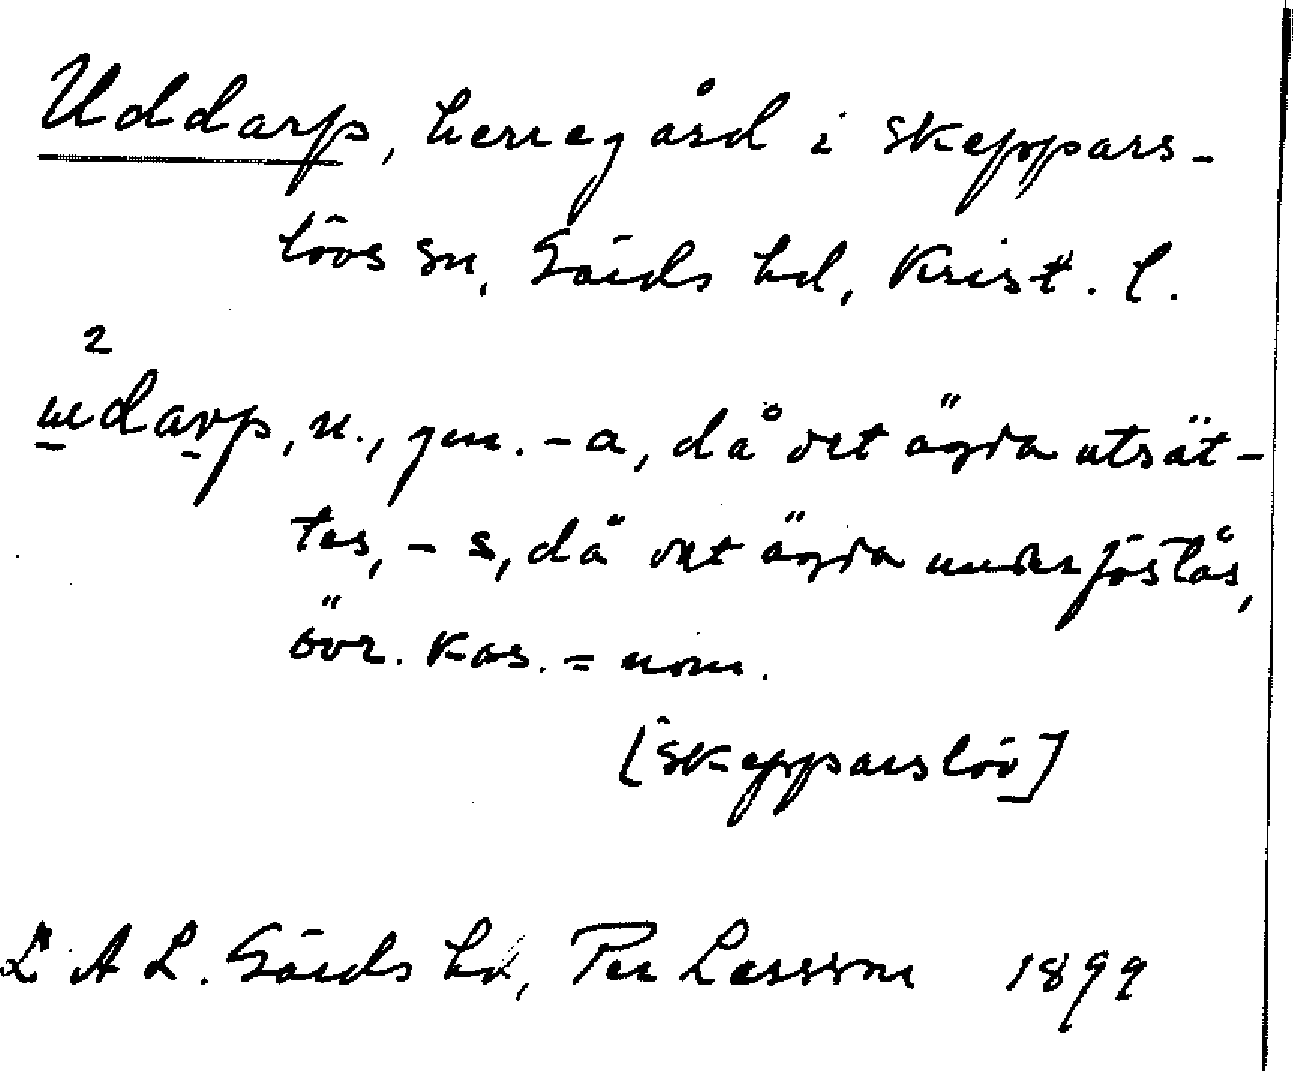 Uddarp, herregård i Skeppars-
lövs sn, Gärds hd, Krist. l.
2
udarp, n., gen. -a, då det ägda utsät-
tes, -s, då det ägda underförstås,
övr. kas. = nom.
[Skepparslöv]
LAL. Gärds hd, Per Larsson 1899